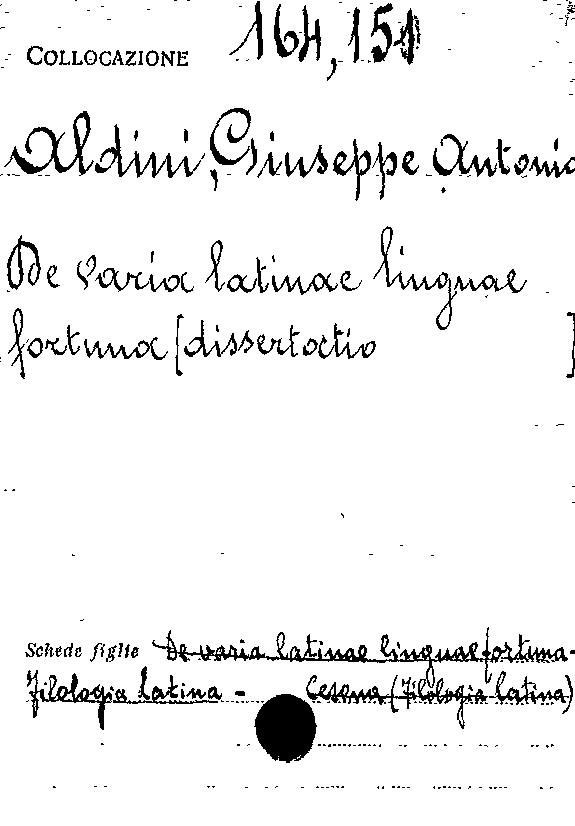 COLLOCAZIONE 164,151
Aldini, Giuseppe Antonio
De varia latinae linguae
fortuna [dissertatio ]
Schede figlie De varia latinae linguae fortuna -
Filologia latina - Cesena (Filologia latina)